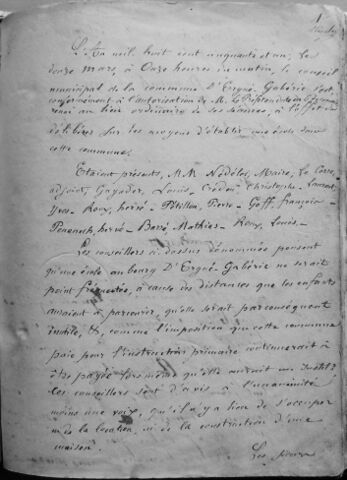 L'An mil huit cent cinquante et un, le
douze mars, à Onze heures du matin, le conseil
municipal de la commune D'Ergué-Gabéric s'est,
conformément à l'autorisation de M. le Préfet
réuni au lieu ordinaire de ses séances, à l'effet de
délibérer sur les moyens d'établir une école dans
cette commune.
Etaient présents, M.M. Nédélec, Maire, Le Corre,
adjoint, Gayader, Louis - Crédou Christophe - Laurent
Yves - Rony, hervé - Pétillon, Pierre - Goff, françois -
hervé - Baré, Mathias - Rony, Louis -
Les conseillers ci dessus dénommés pensent
qu'une école au bourg D'Ergué-Gabéric ne serait
point fréquentée, à cause des distances que les enfants
auraient à parcourir, qu'elle serait par conséquent
inutile, &, comme l'imposition que cette commune
paie pour l'instruction primaire continuerait à
être payée lors même qu'elle aurait un
Les conseillers sont d'avis à l'unanimité
moins une voix, qu'il n'y a lieu de s'occuper
ni de la location, ni de la construction d'une
maison.